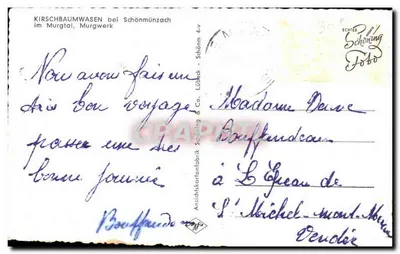 KIRSCHBAUMWASEN bei Schönmünzach
im Murgtal, Murgwerk
ECHTES
Schöning
Foto
Nous avons fais un
très bon voyage
passer une très
bonne journée
Bouffandeau
Ansichtskartenfabrik Schöning & Co., Lübeck
Schönm 4-v
Madame Veuve
Bouffandeau
à L'
de
St Michel-mont-Mercure
Vendée